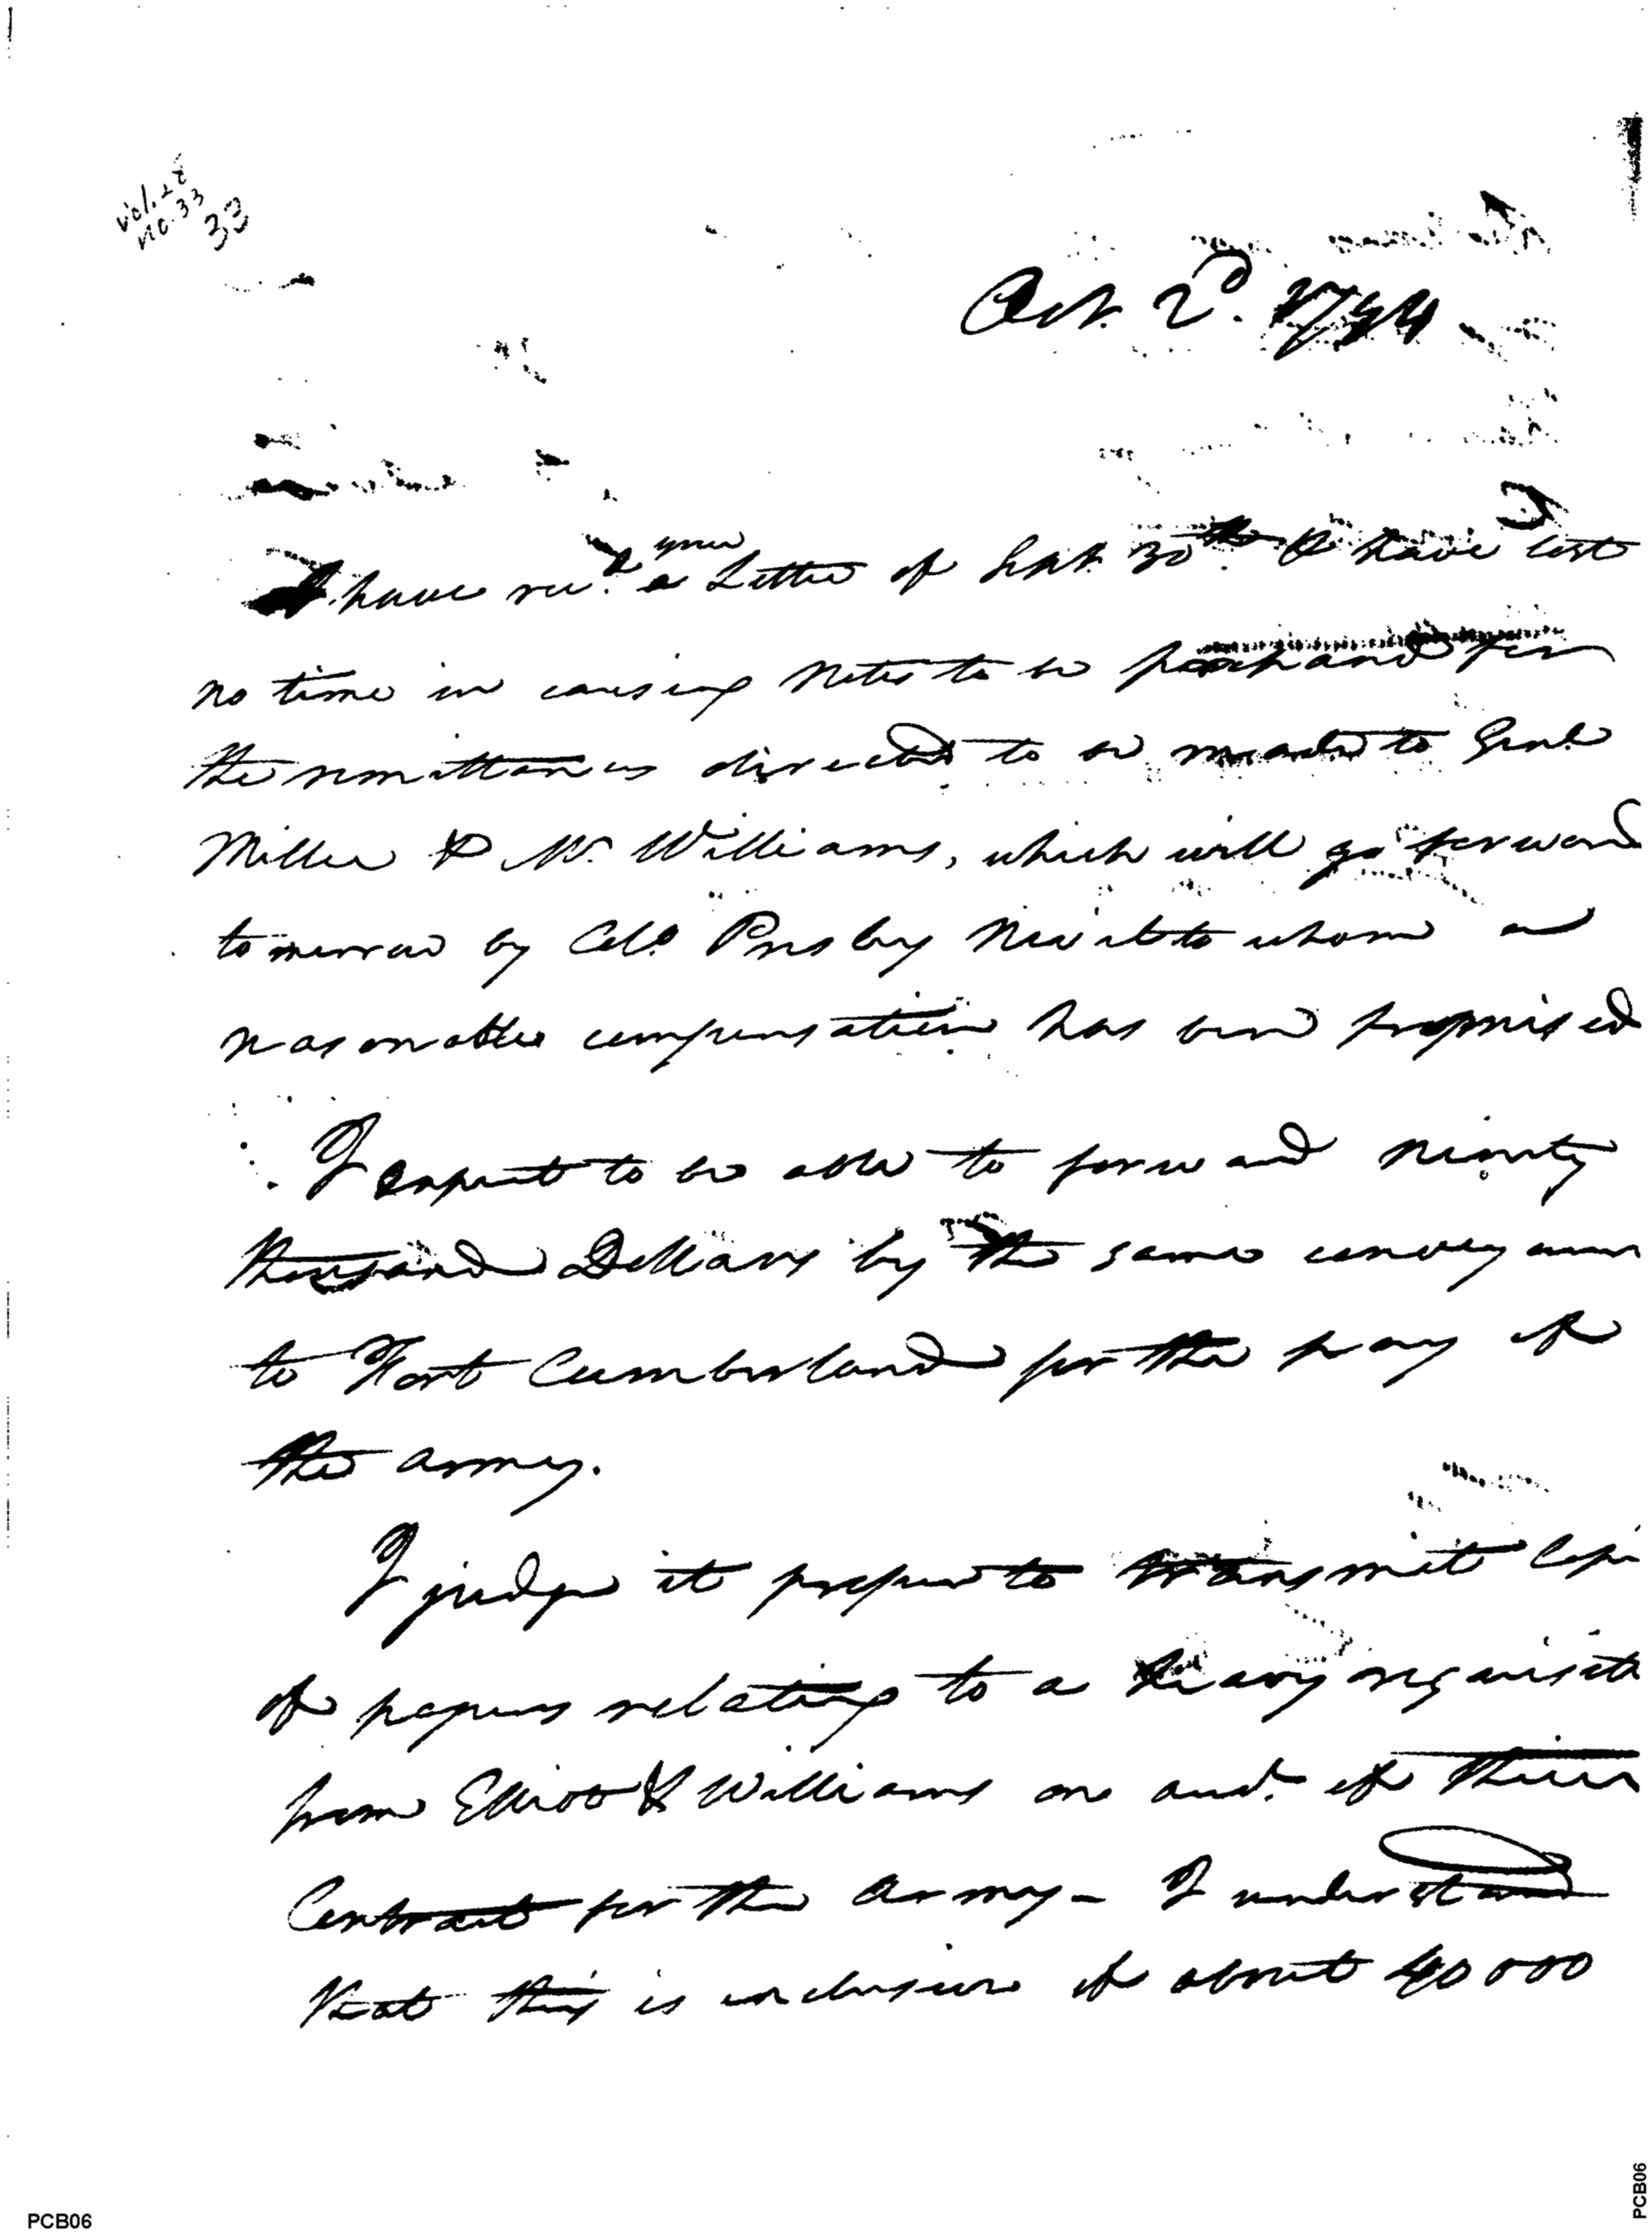 Vol. 28
no. 33
33
Oct. 2d. 1794
I have recd. a your Letter of Sept. 30th. I have lost
no time in causing Notes to be prepared for
the remittances directed to be made to Genl.
Miller & Mr. Williams, which will go forward
tomorrow by Colo. Presley Nevil to whom a
reasonable compensation has been promised
I expect to be able to forward ninety
thousand Dollars by the same conveyance
to Fort Cumberland for the pay of
the army.
I judge it proper to transmit Copi
of papers relating to a heavy requisiti
from Elliott & Williams on acct. of their
Contract for the Army - I understand
that this is inclusive of about 40000
PCB06
PCB06